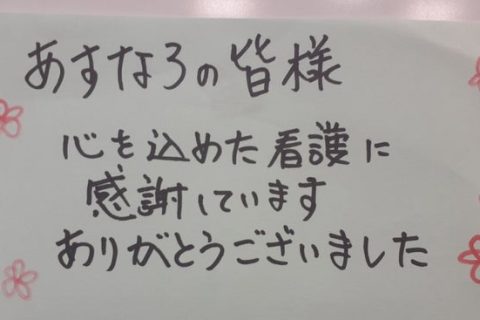 あすなろの皆様
心を込めた看護に
感謝しています
ありがとうございました